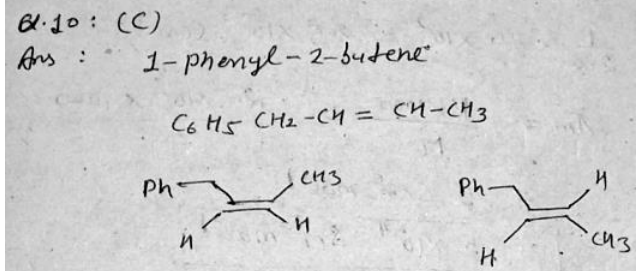 Q.10 : (C)
Ans : 1-phenyl-2-butene
C6H5 CH2-CH = CH-CH3
Ph CH3 Ph H
H H H CH3